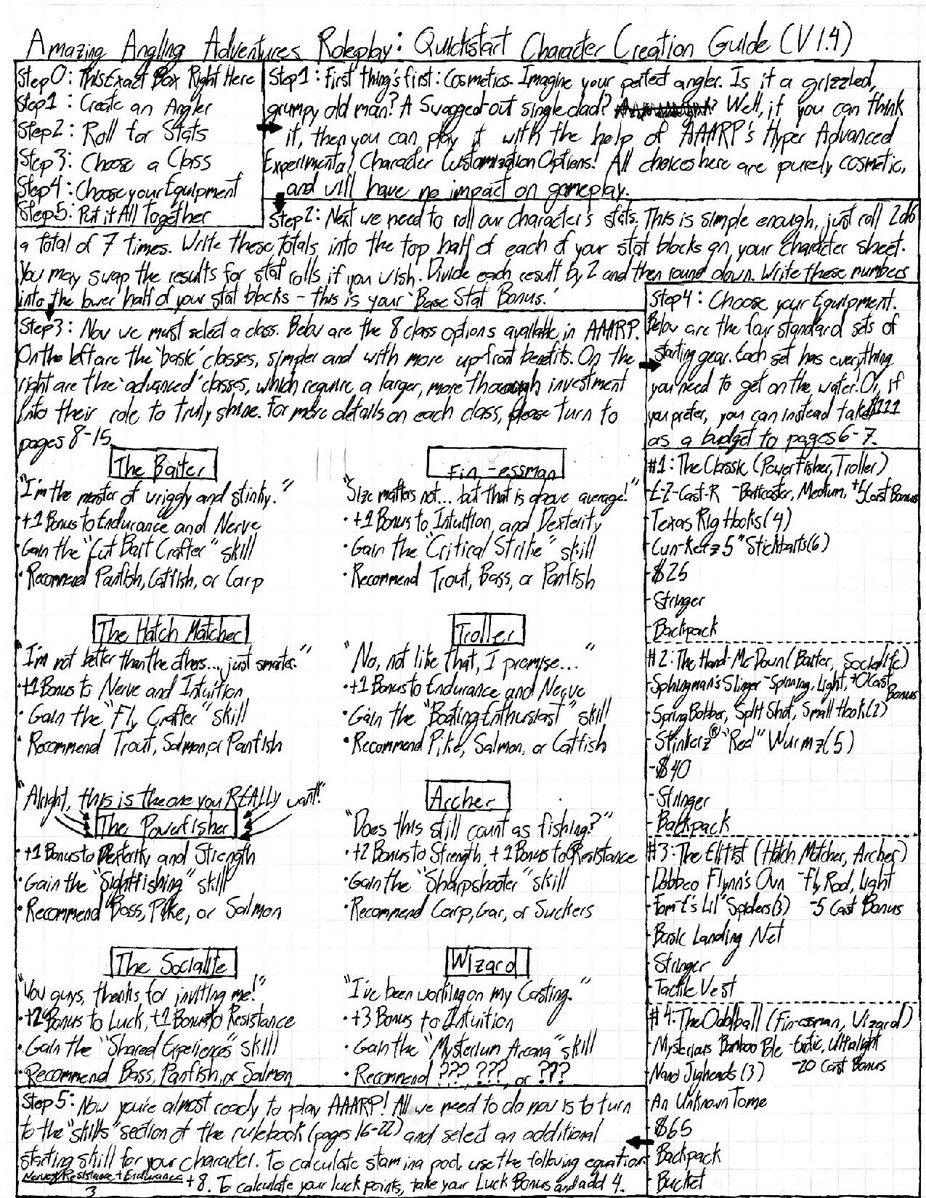 Amazing Angling Adventures Roleplay: Quickstart Character Creation Guide (V1.4)
Step0: This Exact Box Right Here
Step1: Create an Angler
Step2: Roll for Stats
Step3: Choose a Class
Step4: Choose your Equipment
Step5: Put it All Together
Step1: First thing's first: Cosmetics. Imagine your perfect angler. Is it a grizzled,
grumpy old man? A swagged out single dad? Well, if you can think
it, then you can play it with the help of AAARP's Hyper Advanced
Experimental Character Customization Options! All choices here are purely cosmetic,
and will have no impact on gameplay.
Step2: Next we need to roll our character's stats. This is simple enough, just roll 2d6
a total of 7 times. Write these totals into the top half of each of your stat blocks on your character sheet.
You may swap the results for stat rolls if you wish. Divide each result by 2 and then round down. Write these numbers
into the lower half of your stat blocks - this is your "Base Stat Bonus."
Step3: Now we must select a class. Below are the 8 class options available in AAARP.
On the left are the "basic" classes, simpler and with more upfront benefits. On the
right are the "advanced" classes, which require a larger, more thorough investment
into their role to truly shine. For more details on each class, please turn to
pages 8-15.
The Baiter
"I'm the master of wriggly and stinky."
•+1 Bonus to Endurance and Nerve
•Gain the "Cut Bait Crafter" skill
•Recommend Panfish, Catfish, or Carp
The Hatch Matcher
"I'm not better than the others... just smarter."
•+1 Bonus to Nerve and Intuition
•Gain the "Fly Crafter" skill
•Recommend Trout, Salmon, or Panfish
"Alright, this is the one you REALLY want!"
The Powerfisher
•+1 Bonus to Dexterity and Strength
•Gain the "Sightfishing" skill
•Recommend Bass, Pike, or Salmon
The Socialite
"You guys, thanks for inviting me!"
•+2 Bonus to Luck, +1 Bonus to Resistance
•Gain the "Shared Experiences" skill
•Recommend Bass, Panfish, or Salmon
Fin-essman
"Size matters not... but that is above average!"
•+1 Bonus to Intuition, and Dexterity
•Gain the "Critical Strike" skill
•Recommend Trout, Bass, or Panfish
Troller
"No, not like that, I promise..."
•+1 Bonus to Endurance and Nerve
•Gain the "Boating Enthusiast" skill
•Recommend Pike, Salmon, or Catfish
Archer
"Does this still count as fishing?"
•+2 Bonus to Strength, +1 Bonus to Resistance
•Gain the "Sharpshooter" skill
•Recommend Carp, Gar, or Suckers
Wizard
"I've been working on my Casting."
•+3 Bonus to Intuition
•Gain the "Mysterium Arcana" skill
•Recommend ??? ???, or ???
Step4: Choose your Equipment.
Below are the four standard sets of
starting gear. Each set has everything
you need to get on the water. Or, if
you prefer, you can instead take $111
as a budget to pages 6-7.
#1: The Classic (Powerfisher, Troller)
-E-Z-Cast-R -Baitcaster, Medium, +5 Cast Bonus
-Texas Rig Hooks (4)
-Cun-Kerz 5" Stickbaits (6)
-$25
-Stringer
-Backpack
#2: The Hand-Me-Down (Baiter, Socialite)
-Sphinman's Slinger -Spinning, Light, +0 Cast Bonus
-Spring Bobber, Split Shot, Small Hook (2)
-Stinkerz® "Red" Wurmz (5)
-$40
-Stringer
-Backpack
#3: The Elitist (Hatch Matcher, Archer)
-Dobbco Flynn's Own -Fly Rod, Light
-5 Cast Bonus
-Fam-E's Lil' Spiders (3)
-Basic Landing Net
-Stringer
-Tactile Vest
#4: The Oddball (Fin-essman, Wizard)
-Mysterious Bamboo Pole -Exotic, Ultralight
-20 Cast Bonus
-Nano Jigheads (3)
-An Unknown Tome
-$65
-Backpack
-Bucket
Step5: Now you're almost ready to play AAARP! All we need to do now is to turn
to the "skills" section of the rulebook (pages 16-22) and select an additional
starting skill for your character. To calculate stamina pool, use the following equation
Nerve+Resistance+Endurance
3
+8. To calculate your luck points, take your Luck Bonus and add 4.